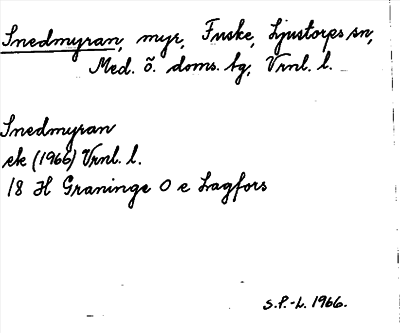 Snedmyran, myr, Fuske, Ljustorps sn,
Med. ö. doms. bg, Vrnl. l.
Snedmyran
ek (1966) Vrnl. l.
18 H Graninge O e Lagfors
S.P.-L. 1966.